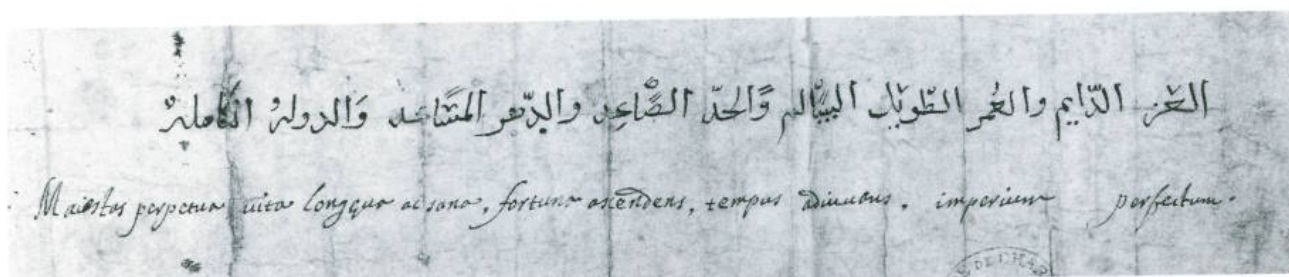 العَز الدّايم والعُمر الطّويل السَّالم وَالحدّ الصَّاعِد والدّهر المسَاعد وَالدولة الكَاملة
Maiestas perpetua uita longqua ac sana, fortuna ascendens, tempus adiuuans, imperium perfectum.